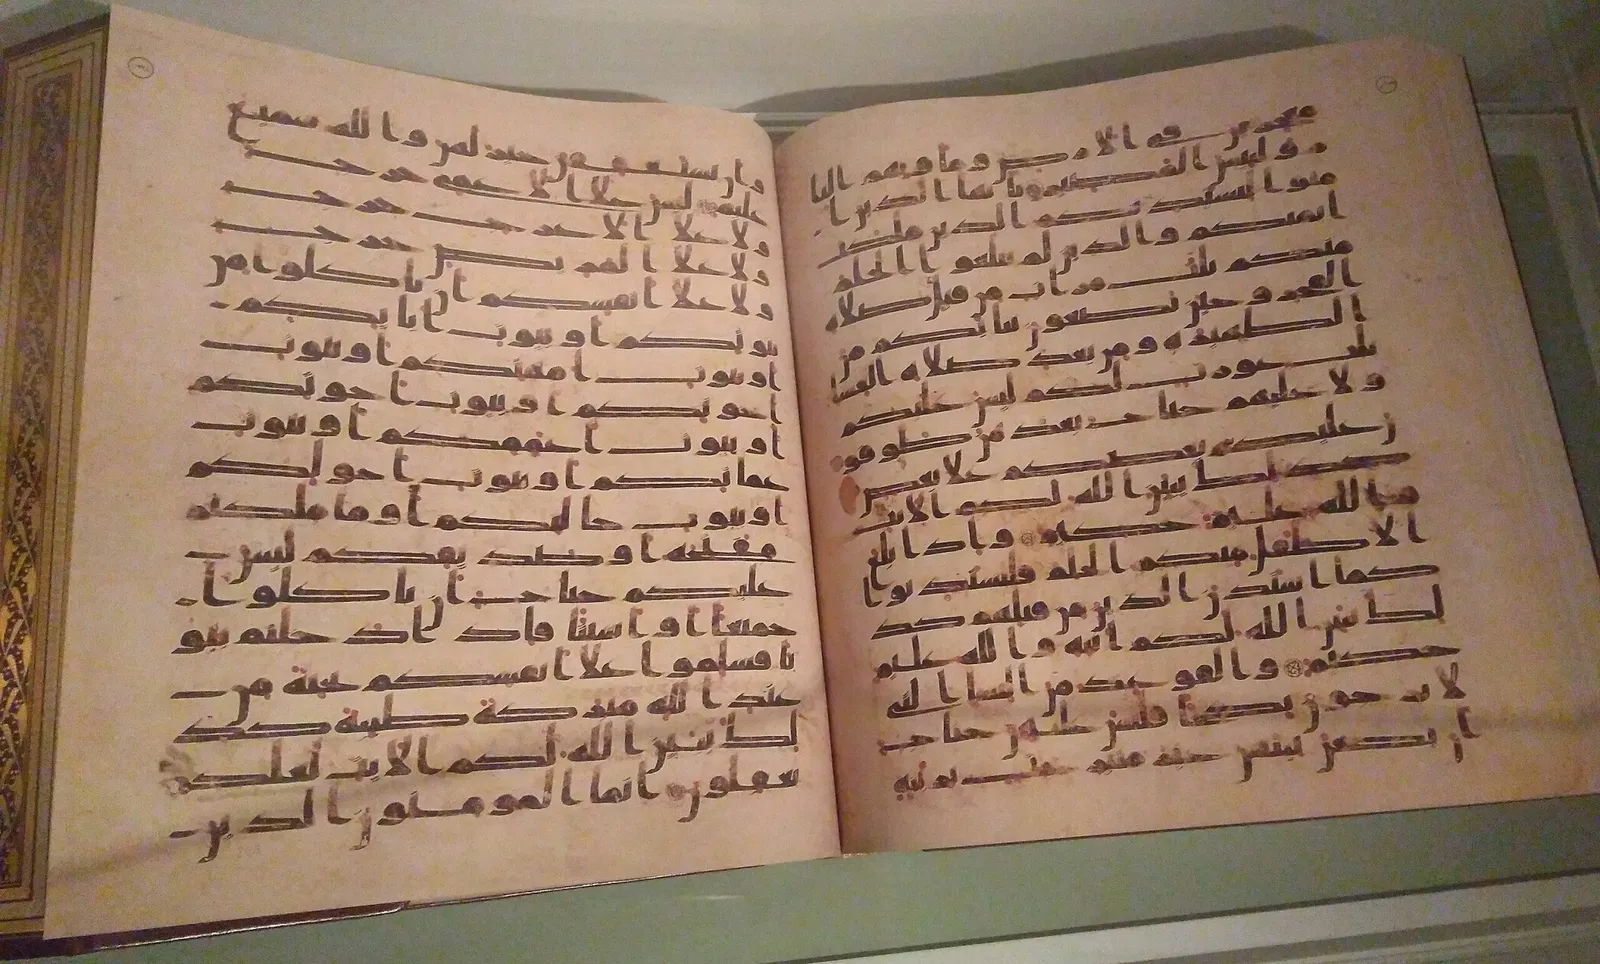 معجزين في الارض وماويهم النا
ر ولبيس المصير يايها الذين ا
منوا ليستذنكم الذين ملكت
ايمنكم والذين لم يبلغوا الحلم
منكم ثلث مرات من قبل صلاه
الفجر وحين تضعون ثيابكم من
الظهيره ومن بعد صلاه العشا
ثلث عورت لكم ليس عليكم
ولا عليهم جناح بعدهن طوفو
ن عليكم بعضكم علا بعض
كذلك يبين الله لكم الايت
والله عليم حكيم واذا بلغ
الاطفل منكم الحلم فليستذنوا
كما استذن الذين من قبلهم كذ
لك يبين الله لكم ايته والله عليم
حكيم والقوعد من النسا التي
لا يرجون نكاحا فليس عليهن جناح
ان يضعن ثيابهن غير متبرجت بزينه
وان يستعففن خير لهن والله سميع
عليم ليس علا الاعمى حرج
ولا علا الاعرج حرج
ولا علا المريض حرج
ولا علا انفسكم ان تاكلوا من
بيوتكم او بيوت ابايكم
او بيوت امهتكم او بيوت
اخونكم او بيوت اخوتكم
او بيوت اعممكم او بيوت
عمتكم او بيوت اخولكم
او بيوت خالتكم او ما ملكتم
مفتحه او صديقكم ليس
عليكم جناح ان تاكلوا
جميعا او اشتتا فاذا دخلتم بيو
تا فسلموا علا انفسكم تحية من
عند الله مبركة طيبة كذ
لك يبين الله لكم الايت لعلكم
تعقلون انما المومنون الذين